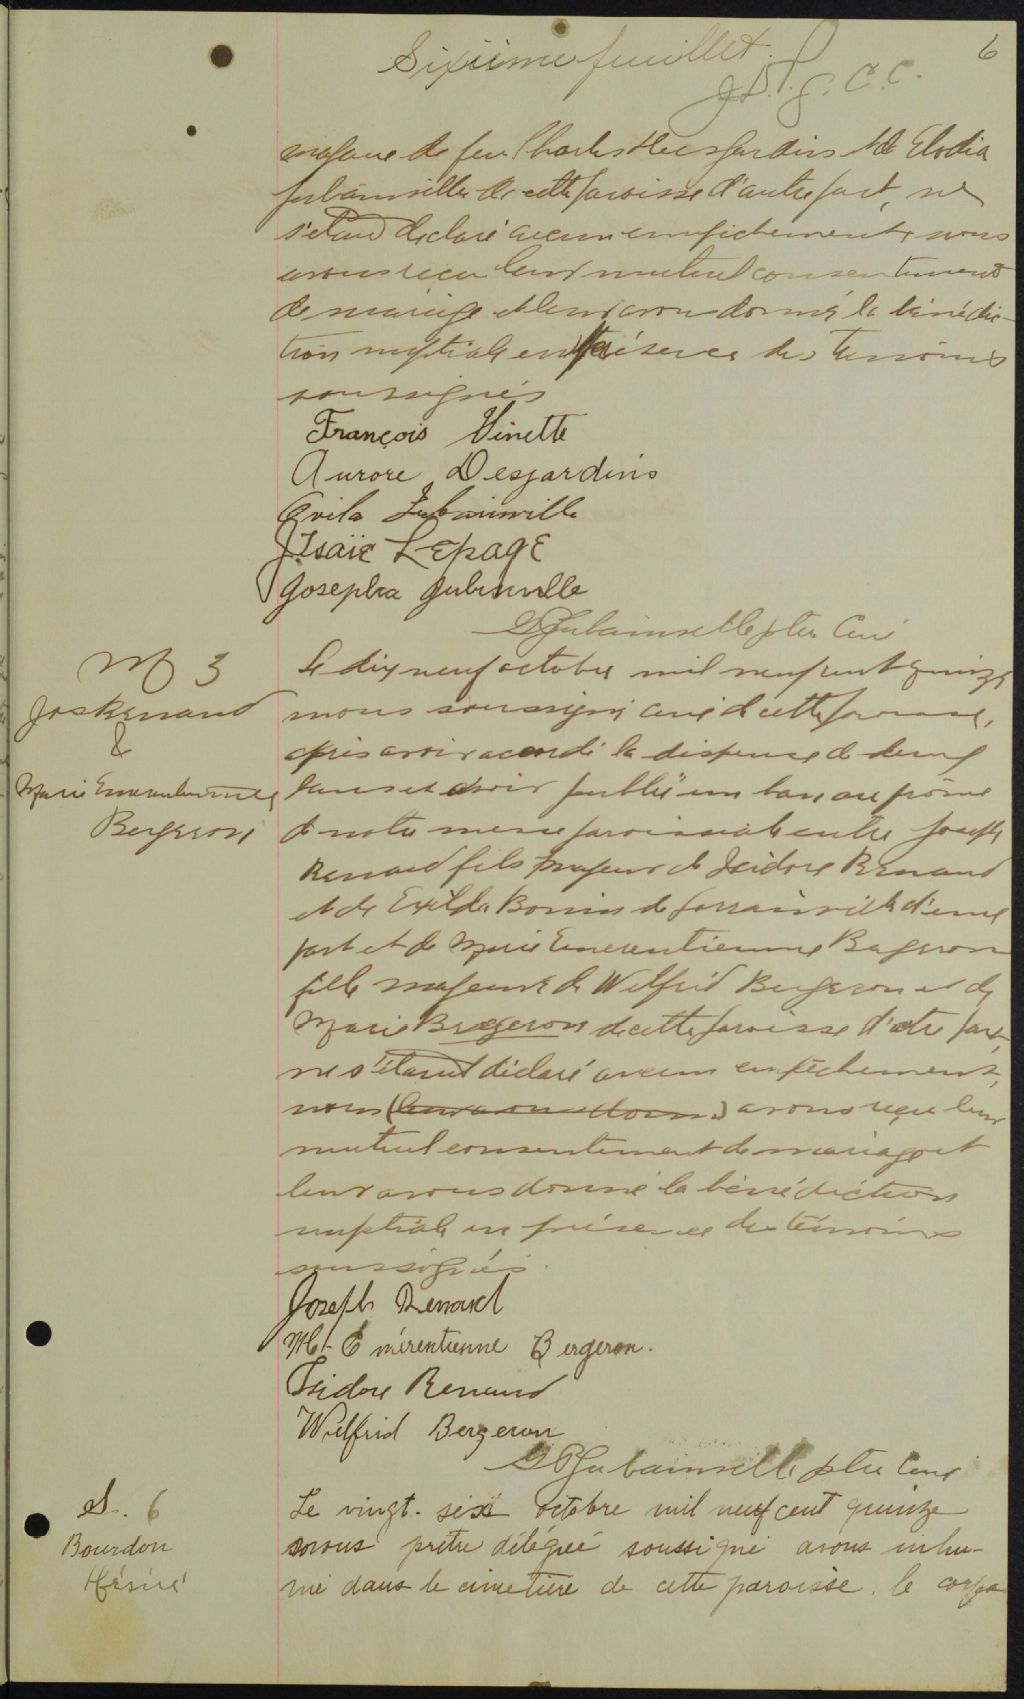 Sixième feuillet.
6
J. D. P. G. C. C.
majeure de feu Charles Desjardins et de Elodia
Jubainville de cette paroisse d'autre part, ne
s'étant déclaré aucun empêchement nous
avons reçu leur mutuel consentement
de mariage et leur avons donné la bénédic-
tion nuptiale en présence des témoins
soussignés
François Vinette
Aurore Desjardins
Avila Jubainville
J. Isaïe Lepage
Josepha Jubinville
Jubainville ptre Curé
M 3
Jos Renaud
&
Marie Emerentienne
Bergeron
Le dix neuf octobre mil neuf cent quinze
nous soussigné curé de cette paroisse,
après avoir accordé la dispense de deux
bans et avoir publié un ban au prône
de notre messe paroissiale entre Joseph
Renaud fils majeur de Isidore Renaud
et de Exilda Bonin de Lorrainville d'une
part et de Marie Emerentienne Bergeron
fille majeure de Wilfrid Bergeron et de
Marie Bergeron de cette paroisse d'autre part,
ne s'étant déclaré aucun empêchement,
nous (leur avons donné) avons reçu leur
mutuel consentement de mariage et
leur avons donné la bénédiction
nuptiale en présence des témoins
soussignés.
Joseph Renaud
M.-Emérentienne Bergeron.
Isidore Renaud
Wilfrid Bergeron
Jubainville ptre Curé
S. 6
Bourdon
Désiré
Le vingt-six octobre mil neuf cent quinze
nous prêtre délégué soussigné avons inhu-
mé dans le cimetière de cette paroisse le corps